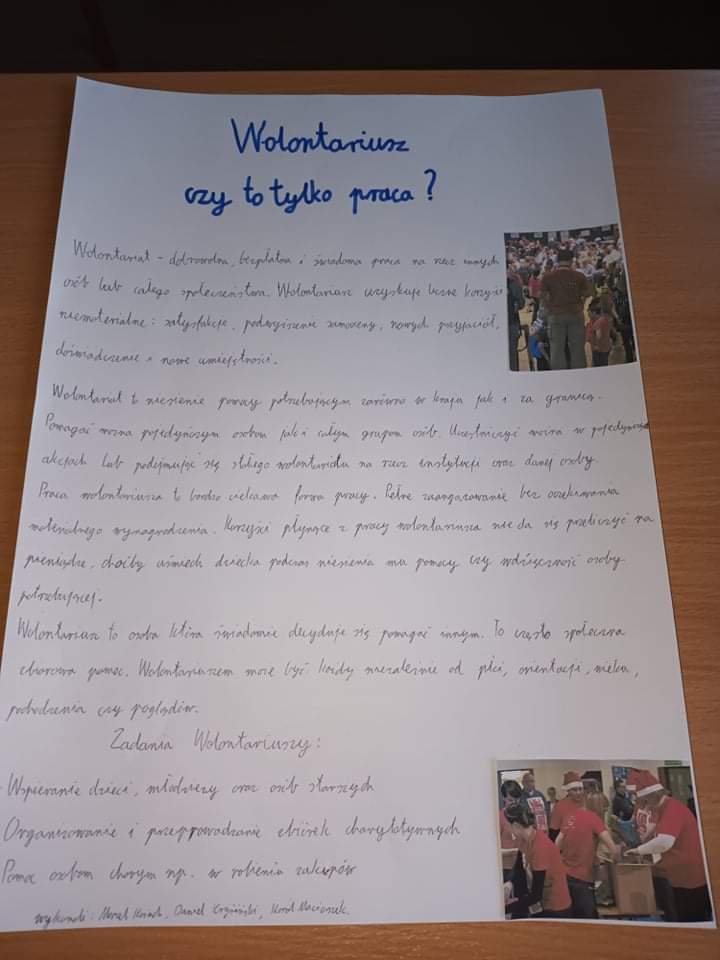 Wolontariusz
czy to tylko praca?
Wolontariat - dobrowolna, bezpłatna i świadoma praca na rzecz innych
osób lub całego społeczeństwa. Wolontariusz uzyskuje liczne korzyści
niematerialne: satysfakcję, podwyższenie samooceny, nowych przyjaciół,
doświadczenie i nowe umiejętności.
Wolontariat to niesienie pomocy potrzebującym zarówno w kraju jak i za granicą.
Pomagać można pojedyńczym osobom jak i całym grupom osób. Uczestniczyć można w pojedynczych
akcjach lub podejmując się stałego wolontariatu na rzecz instytucji oraz danej osoby.
Praca wolontariusza to bardzo ciekawa forma pracy. Pełne zaangażowanie bez oczekiwania
materialnego wynagrodzenia. Korzyści płynące z pracy wolontariusza nie da się przeliczyć na
pieniądze, choćby uśmiech dziecka podczas niesienia mu pomocy czy wdzięczność osoby
potrzebującej.
Wolontariusz to osoba która świadomie decyduje się pomagać innym. To często społeczna
zbiorowa pomoc. Wolontariuszem może być każdy niezależnie od płci, orientacji, wieku,
pochodzenia czy poglądów.
Zadania Wolontariuszy:
- Wspieranie dzieci, młodzieży oraz osób starszych
Organizowanie i przeprowadzanie zbiórek charytatywnych
Pomoc osobom chorym np. w robieniu zakupów
wykonali: Daniel Karol